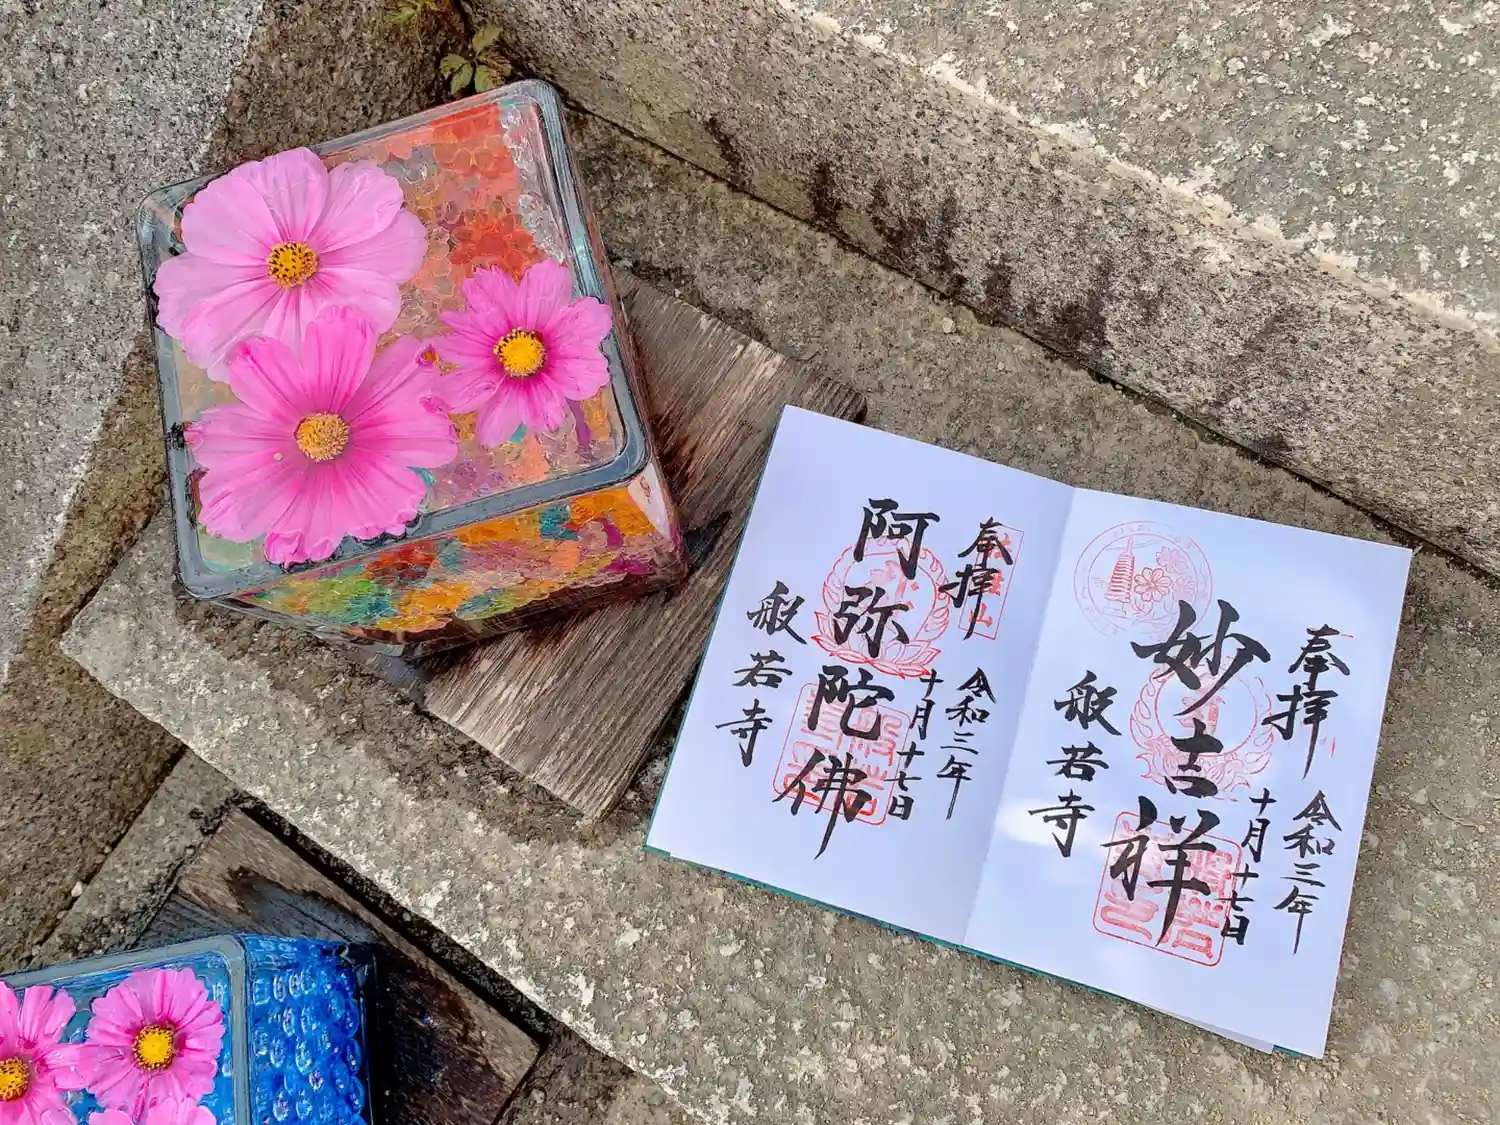 奉拝
令和三年
十月十七日
妙吉祥
般若寺
奉拝
令和三年
十月十七日
阿弥陀佛
般若寺